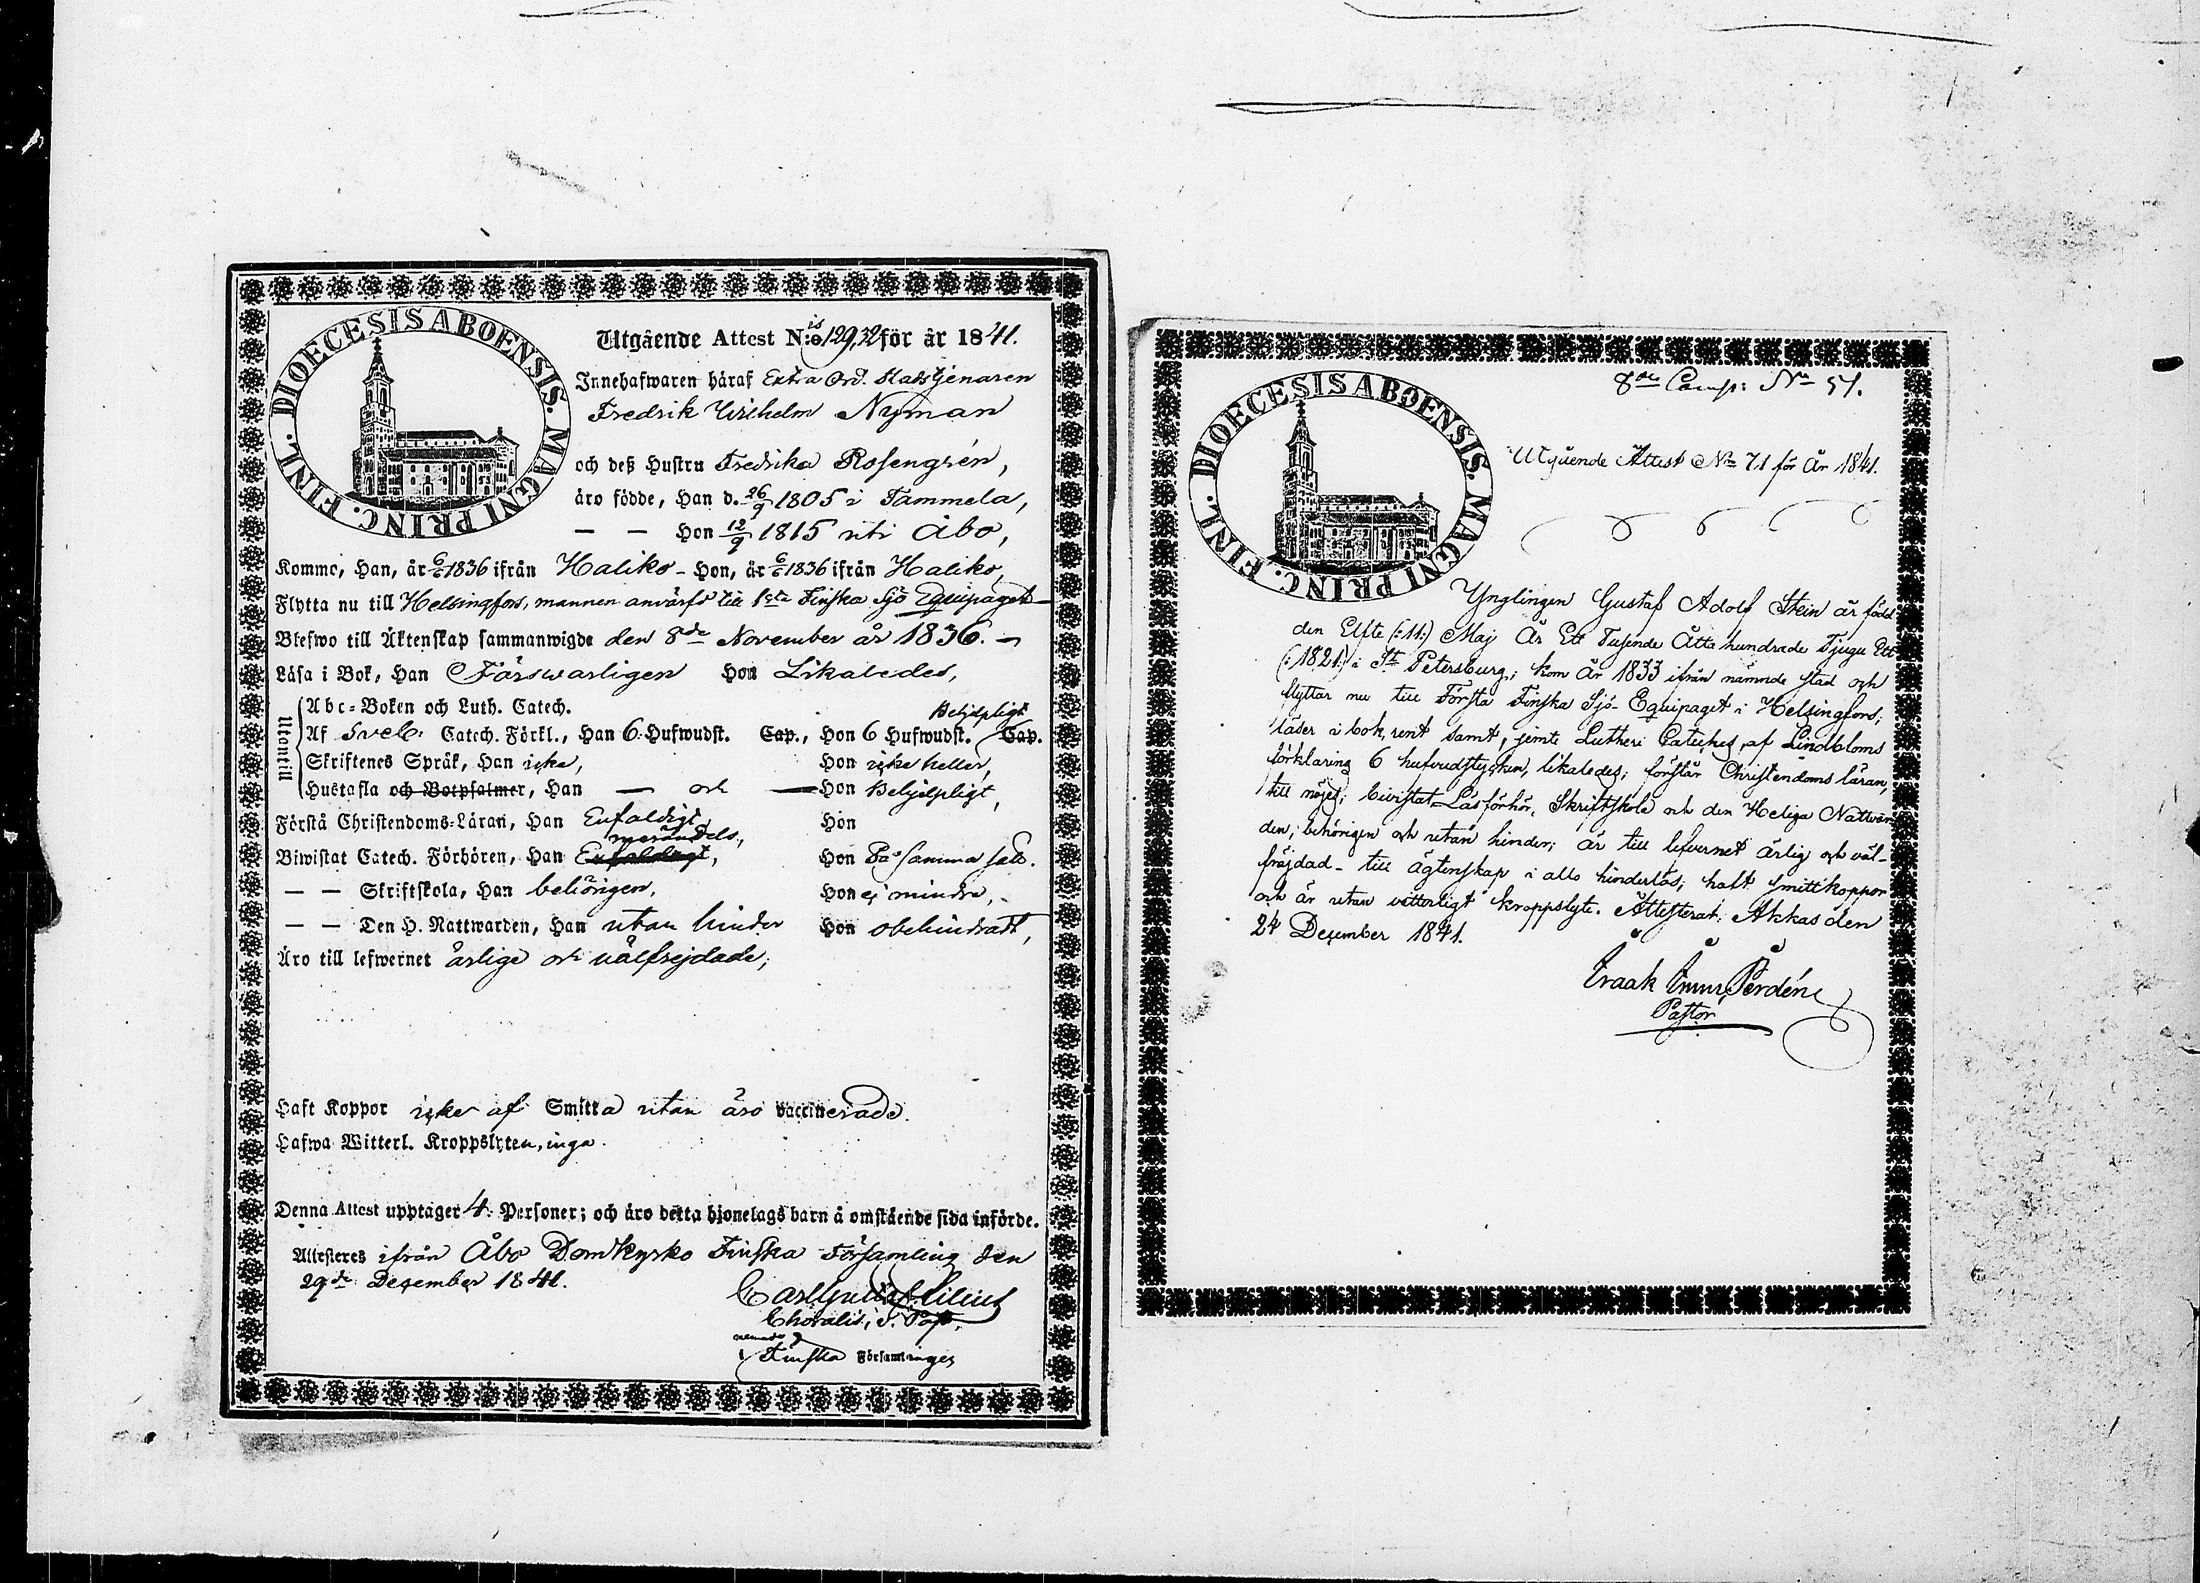 DIOECESIS ABOENSIS. MAGNI PRINC. FINL.
Utgående Attest N:is 129,32 för år 1841.
Innehafwaren häraf Extra Ord. Stadstjenaren
Fredrik Wilhelm Nyman
och deß Hustru Fredrika Rosengrén,
äro födde, Han d. 26/9 1805 i Tammela,
— — Hon 12/9 1815 uti Åbo,
Kommo, Han, år 1836 ifrån Haliko - Hon, år 1836 ifrån Haliko,
Flytta nu till Helsingfors, mannen anvärfd till 1sta Finska Sjö Equipaget
Blefwo till Äktenskap sammanwigde den 8de November år 1836.
Läsa i Bok, Han Försvarligen Hon Likaledes,
Utantill
Abc-Boken och Luth. Catech.
Behjelpligt
Af Sveb. Catech. Förkl., Han 6 Hufwudst. Cap., Hon 6 Hufwudst. Cap.
Skriftenes Språk, Han icke, Hon icke heller,
Hustafla och Botpsalmer, Han — och — Hon Behjelpligt,
Förstå Christendoms-Läran, Han Enfaldigt, Hon
merändels,
Biwistat Catech. Förhören, Han Enfaldigt, Hon På samma sätt.
— — Skriftskola, Han behörigen, Hon ej mindre,
— — Den H. Nattwarden, Han utan hinder Hon obehindradt,
Äro till lefwernet ärlige och välfrejdade;
Haft Koppor icke af Smitta utan äro vaccinerade.
Hafwa Witterl. Kroppslyten, inga.
Denna Attest upptager 4 Personer; och äro detta hjonelags barn å omstående sida införde.
Attesteres ifrån Åbo Domkyrko Finska Församling den
29de December 1841.
Carl Gustaf Lilius
Choralis, v. Past.
i Finska Församlingen
DIOECESIS ABOENSIS. MAGNI PRINC. FINL.
8de Comp: No 57.
Utgående Attest No 71 för År 1841.
Ynglingen Gustaf Adolf Stein är född
den Elfte (:11:) Maj År Ett Tusende Åtta hundrade Tjugu Ett
(:1821:) i St Petersburg; kom År 1833 ifrån nämnde stad och
flyttar nu till Första Finska Sjö-Equipaget i Helsingfors;
läser i bok, rent samt, jemte Lutheri Cateches, af Lindbloms
förklaring 6 hufvudstycken, likaledes; förstår Christendoms läran,
till nöjes; bivistat Läsförhör, Skriftskola och den Heliga Nattvar-
den; behörigen och utan hinder; är till lefvernet ärlig och väl-
fräjdad - till ägtenskap i allo hinderlös; haft smittkoppor
och är utan vitterligt kroppslyte. Attesterat. Akkas den
24 December 1841.
Pastor